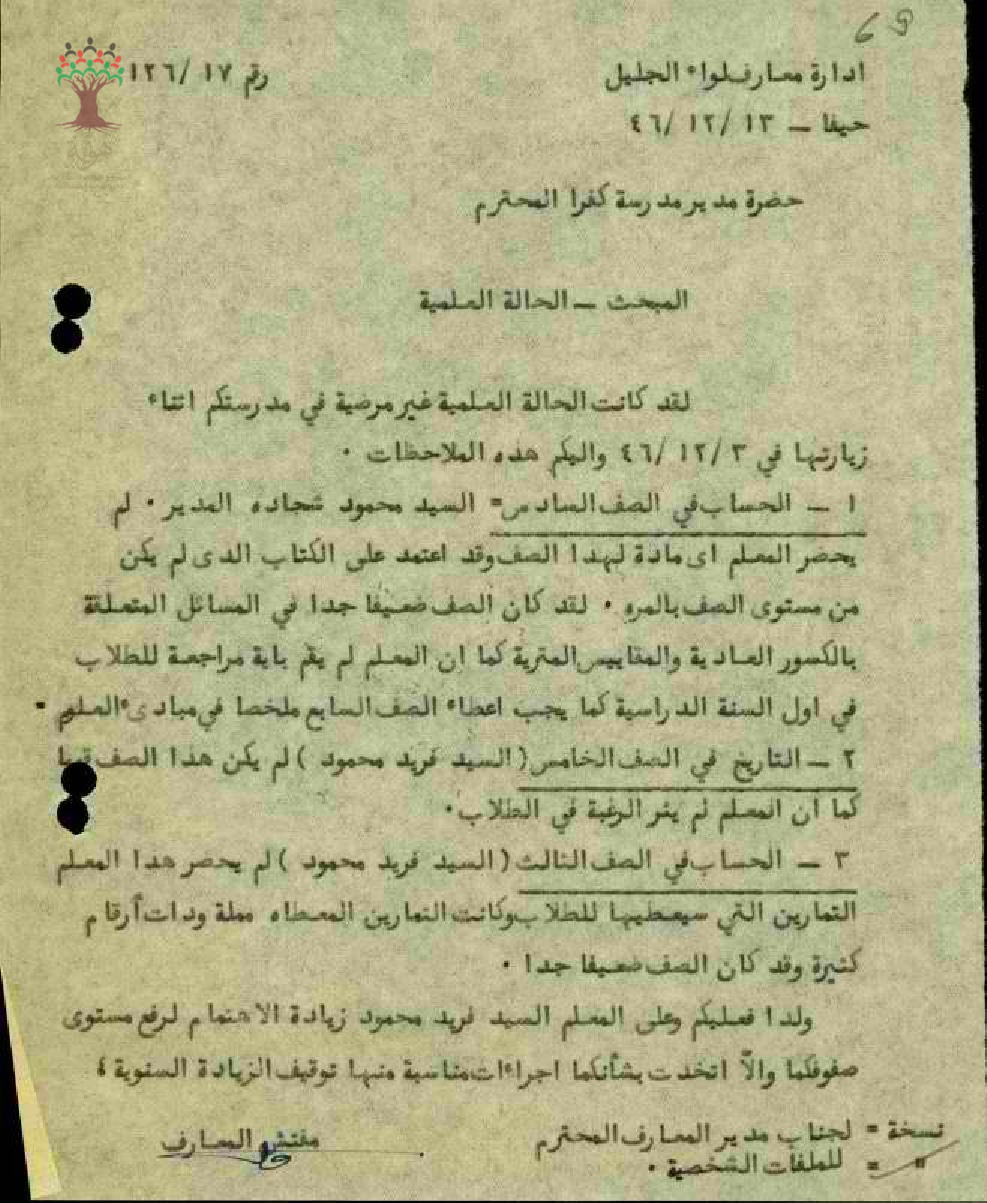 69
ادارة معارف لواء الجليل
رقم ١٧ /١٢٦
حيفا – ١٣ /١٢ /٤٦
حضرة مدير مدرسة كفرا المحترم
المبحث – الحالة العلمية
لقد كانت الحالة العلمية غير مرضية في مدرستكم اثناء
زيارتها في ٣ /١٢ /٤٦ واليكم هذه الملاحظات ٠
١ – الحساب في الصف السادس= السيد محمود شحاده المدير ٠ لم
يحضر المعلم اى مادة لهذا الصف وقد اعتمد على الكتاب الذى لم يكن
من مستوى الصف بالمره ٠ لقد كان الصف ضعيفا جدا في المسائل المتعلقة
بالكسور العادية والمقاييس المترية كما ان المعلم لم يقم باية مراجعة للطلاب
في اول السنة الدراسية كما يجب اعطاء الصف السابع ملخصا في مبادىء العلوم ٠
٢ – التاريخ في الصف الخامس ( السيد فريد محمود ) لم يكن هذا الصف قويا
كما ان المعلم لم يثر الرغبة في الطلاب ٠
٣ – الحساب في الصف الثالث ( السيد فريد محمود ) لم يحضر هذا المعلم
التمارين التي سيعطيها للطلاب وكانت التمارين المعطاه مملة وذات أرقام
كثيرة وقد كان الصف ضعيفا جدا ٠
ولذا فعليكم وعلى المعلم السيد فريد محمود زيادة الاهتمام لرفع مستوى
صفوفكما والاّ اتخذت بشأنكما اجراءات مناسبة منها توقيف الزيادة السنوية ،
مفتش المعارف
نسخة = لجناب مدير المعارف المحترم
" = للملفات الشخصية ٠